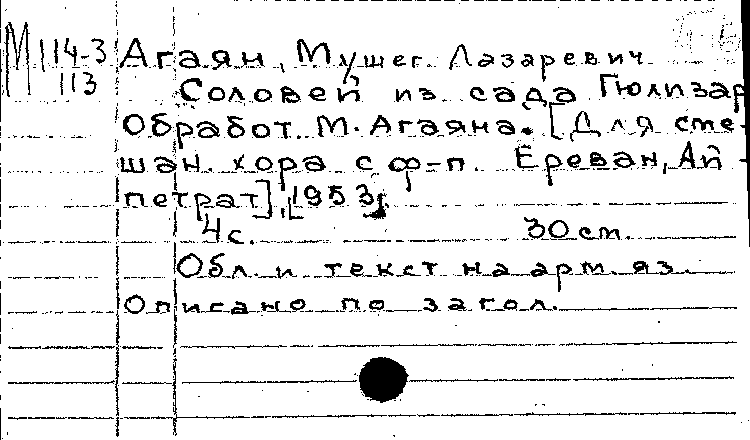 М 114-3 Агаян, Мушег Лазаревич
113 Соловей из сада Гюлизар
Обработ. М. Агаяна. [Для сме-
шан. хора с ф-п. Ереван, Ай-
петрат], [1953].
4 с. 30 см.
Обл. и текст на арм. яз.
Описано по загол.